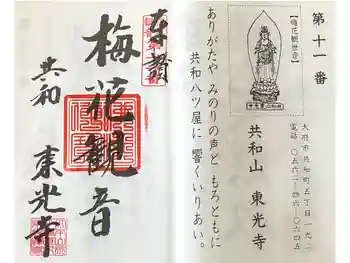 第十一番
【梅花観世音】
大府市共和町五丁目一九二
電話 〇五六二-四六-〇六四五
共和山 東光寺
ありがたや みのりの声と もろともに
共和八ツ屋に 響くいりあい。
奉
梅花観音
共和
東光寺